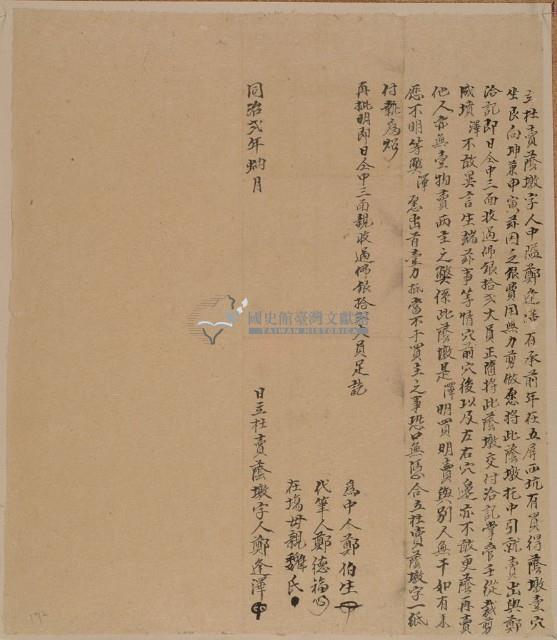 立杜賣蔭墩字人中隘鄭逢澤有承前年在五屏面坑有買得蔭墩壹穴
坐艮向坤兼申寅茲因乏銀費用無力剪做愿將此蔭墩托中引就賣出與鄭
洽記即日仝中三面收過佛銀拾弍大員正隨將此蔭墩交付洽記掌管任從裁剪
成墳澤不敢異言生端滋事等情穴前穴後以及左右穴邊亦不敢更蔭再賣
他人亦無壹物賣兩主之弊係此蔭墩是澤明買明賣與別人無干如有來
歷不明等弊澤愿出首壹力抵當不干買主之事恐口無憑合立杜賣蔭墩字一紙
付執為炤
再批明即日仝中三面親收過佛銀拾大員足訖
為中人鄭伯生
代筆人鄭德福
在場母親魏氏
同治弍年 月
日立杜賣蔭墩字人鄭逢澤
國史館臺灣文獻館
TAIWAN HISTORICA
172